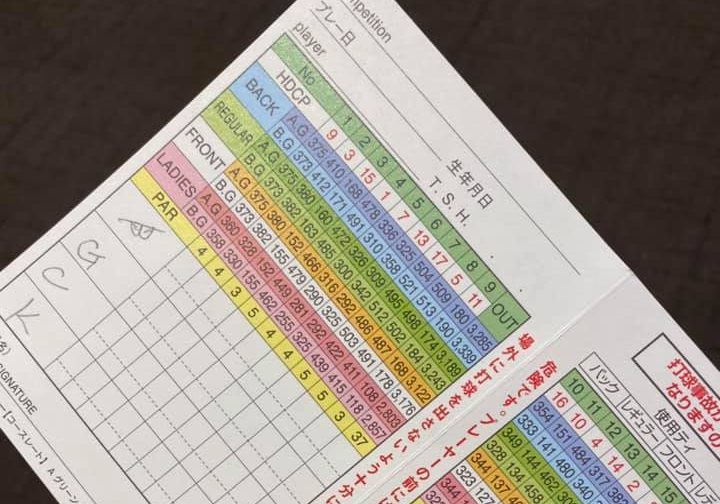 mpetition
プレー日
生年月日
player
T. S. H. . .
No 1 2 3 4 5 6 7 8 9 OUT
HDCP 9 3 15 1 7 13 17 5 11
BACK A.G 375 410 168 478 336 325 504 509 180 3,285
B.G 373 412 171 491 310 358 521 513 190 3,339
REGULAR A.G 375 380 160 472 326 309 495 498 174 3,189
B.G 373 382 163 485 300 342 512 502 184 3,243
FRONT A.G 375 380 152 466 316 292 486 487 168 3,122
B.G 373 382 155 479 290 325 503 491 178 3,176
LADIES A.G 360 328 152 449 281 292 422 411 108 2,803
B.G 358 330 155 462 255 325 439 415 118 2,857
PAR 4 4 3 5 4 4 5 5 3 37
G
C
K
SIGNATURE
【コースレート】 A グリーン
場外に打球を出さないよう十分に
危険です。プレーヤーの前に
打球事故
なりますの
使用ティ
バック レギュラー フロント レ
10 11 12 13 14 15
16 10 4 14 2
354 151 484 317
333 141 480 340
349 144 462
328 134
344 137
323 127
344